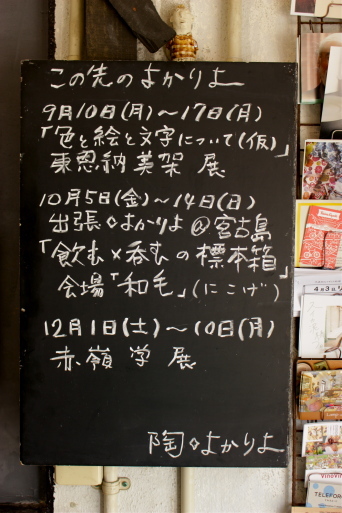 この先のよかりよ
9月10日(月)〜17日(月)
「色と絵と文字について(仮)」
東恩納 美架 展
10月5日(金)〜14日(日)
出張◇よかりよ@宮古島
「飲む×呑むの標本箱」
会場「和毛」(にこげ)
12月1日(土)〜10日(月)
赤嶺 学 展
陶◇よかりよ